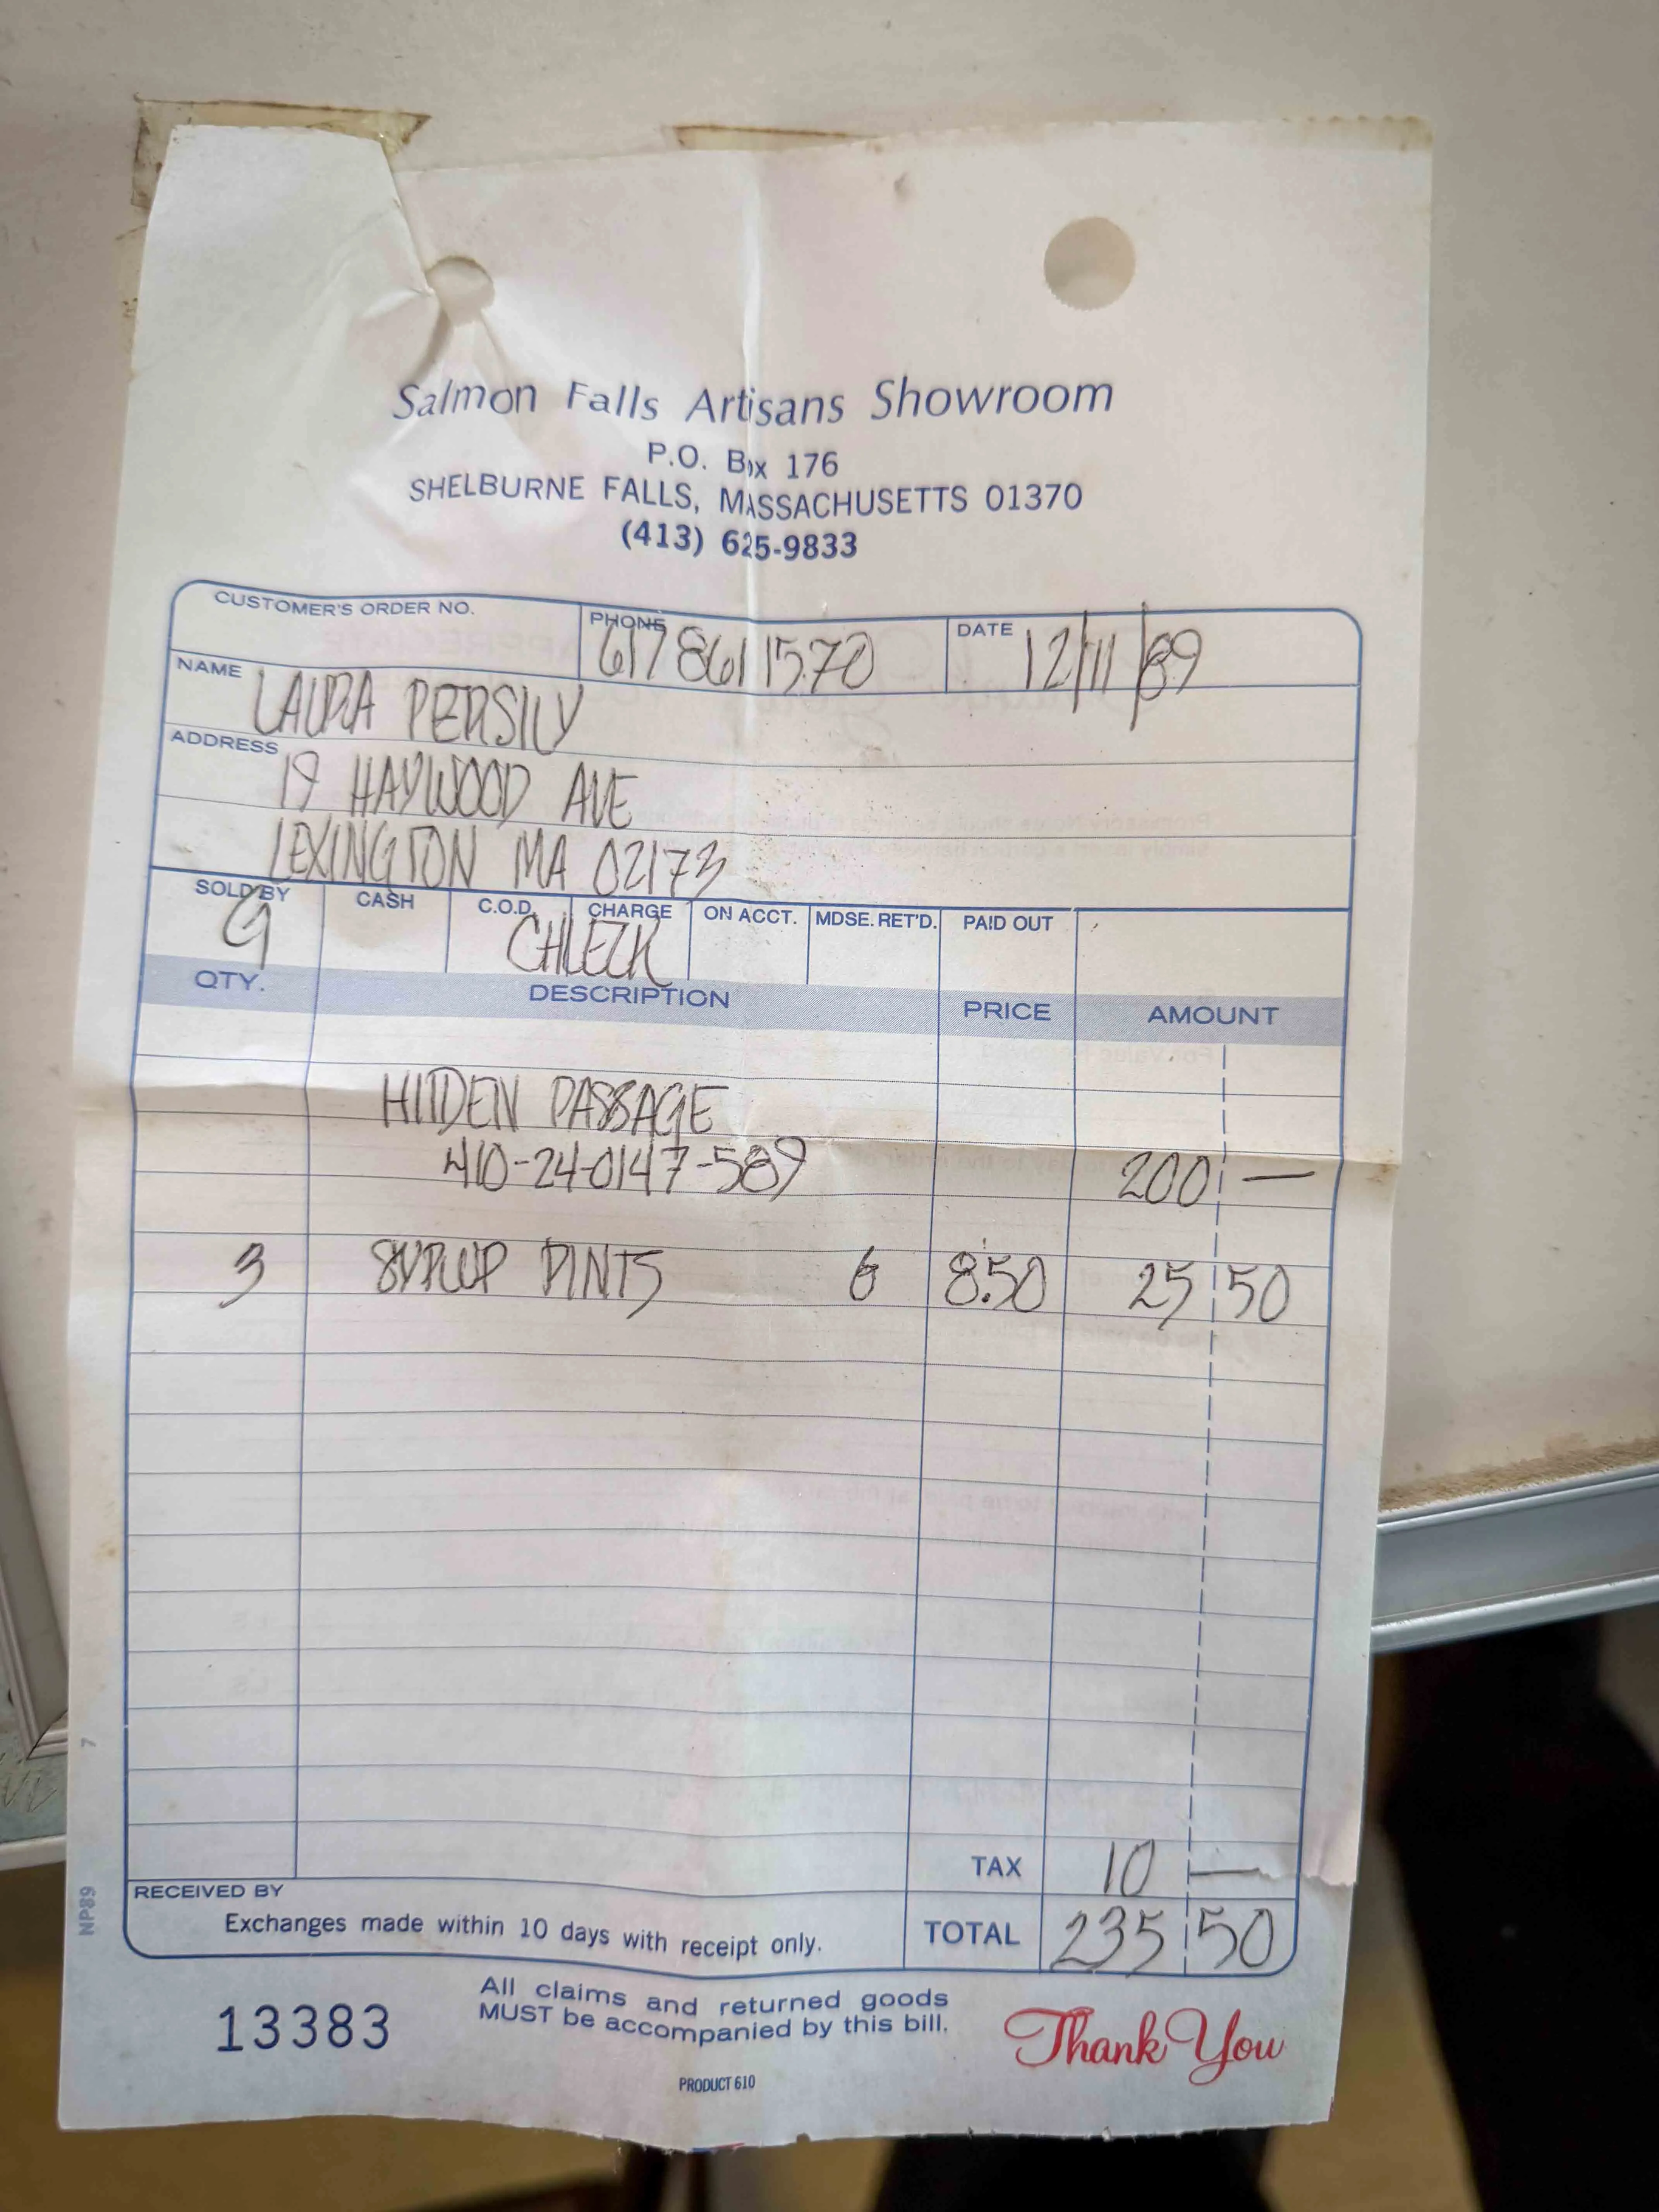 Salmon Falls Artisans Showroom
P.O. Box 176
SHELBURNE FALLS, MASSACHUSETTS 01370
(413) 625-9833
CUSTOMER'S ORDER NO.
PHONE 617 861 1570
DATE 12/11/89
NAME LAURA PERSILY
ADDRESS 19 HAYWOOD AVE
LEXINGTON MA 02173
SOLD BY CASH C.O.D. CHARGE ON ACCT. MDSE. RET'D. PAID OUT
G CHECK
QTY. DESCRIPTION PRICE AMOUNT
HIDDEN PASSAGE
410-24-0147-589 200 —
3 SYRUP PINTS 6 8.50 25 50
TAX 10 —
RECEIVED BY
Exchanges made within 10 days with receipt only.
TOTAL 235 50
13383
All claims and returned goods
MUST be accompanied by this bill.
Thank You
PRODUCT 610
NP89 7